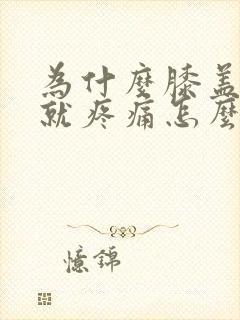 為什麼膝蓋
就疼痛怎麼
憶錦